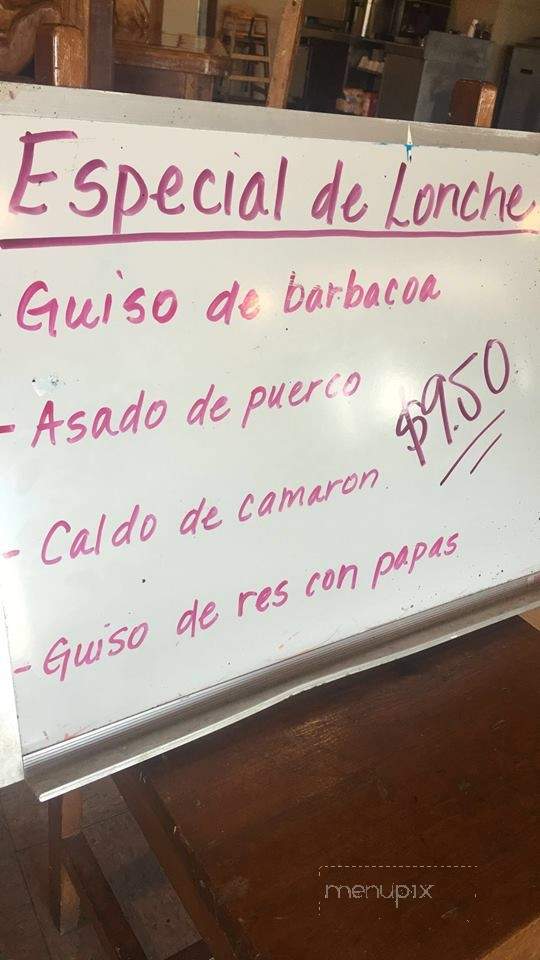 Especial de Lonche
Guiso de barbacoa
- Asado de puerco
$9.50
- Caldo de camaron
- Guiso de res con papas
menupix